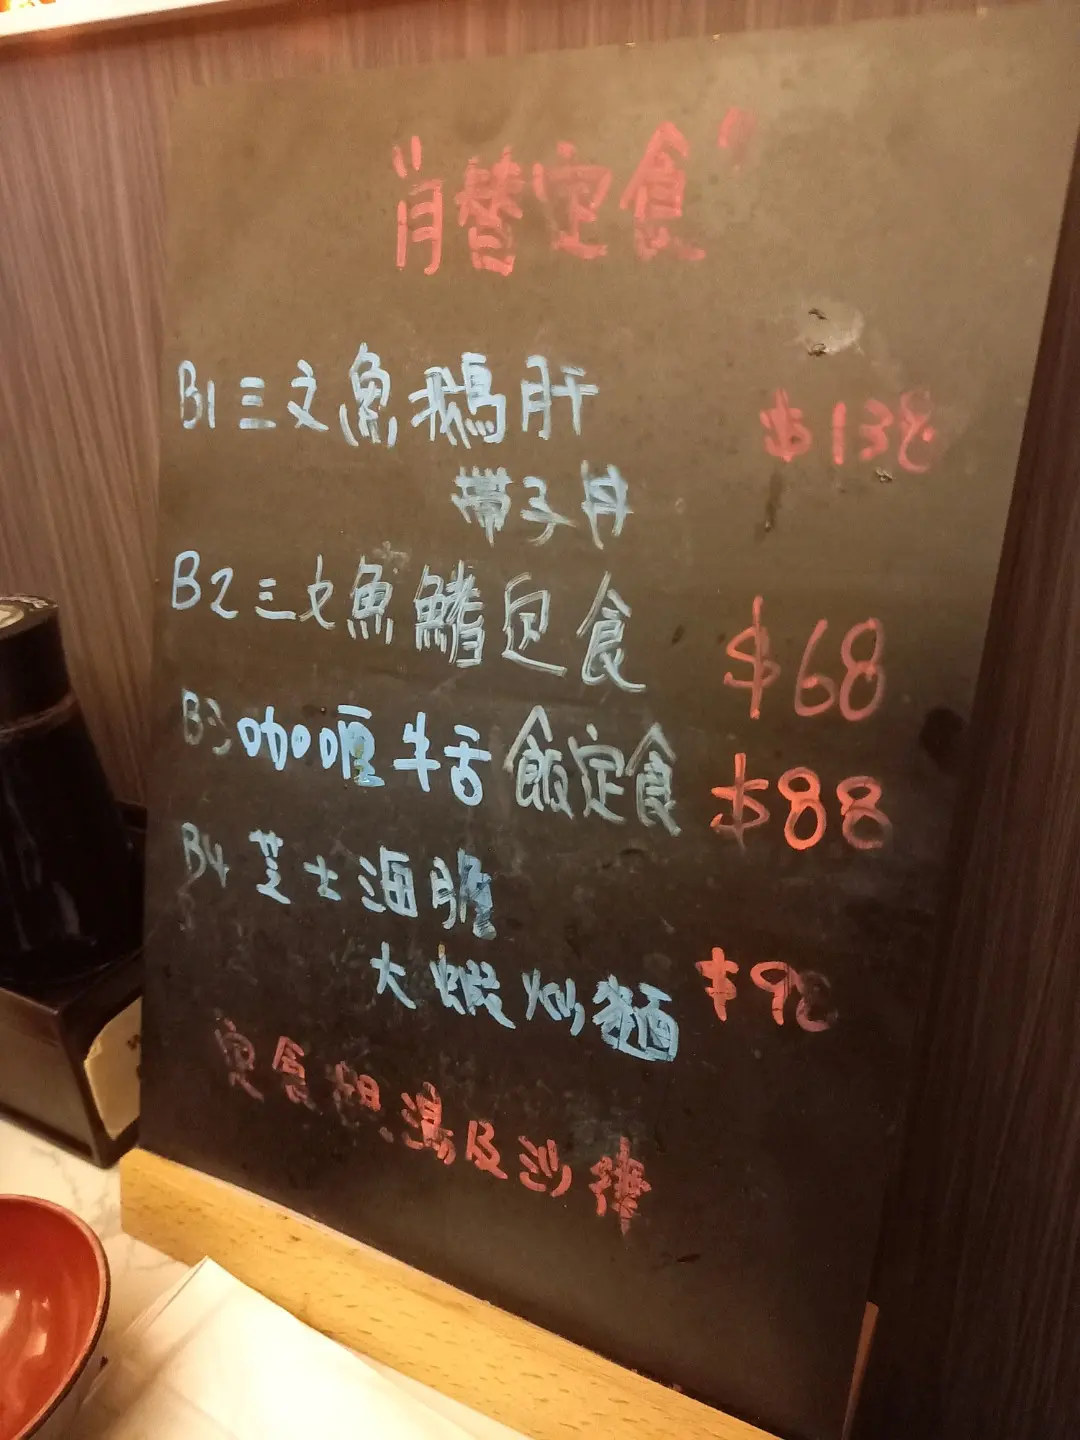 "肖替定食"
B1三文魚鵝肝 $138
帶子丼
B2三文魚鰭定食 $68
B3咖喱牛舌飯定食 $88
B4芝士海膽
大蝦炒麵 $98
定食 湯及沙律